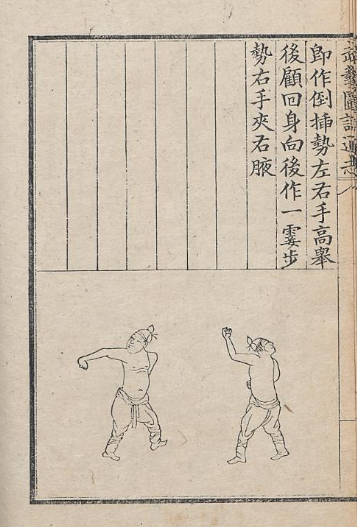 武藝圖譜通志
卽作倒揷勢左右手高擧
後顧回身向後作一霎步
勢右手夾右腋